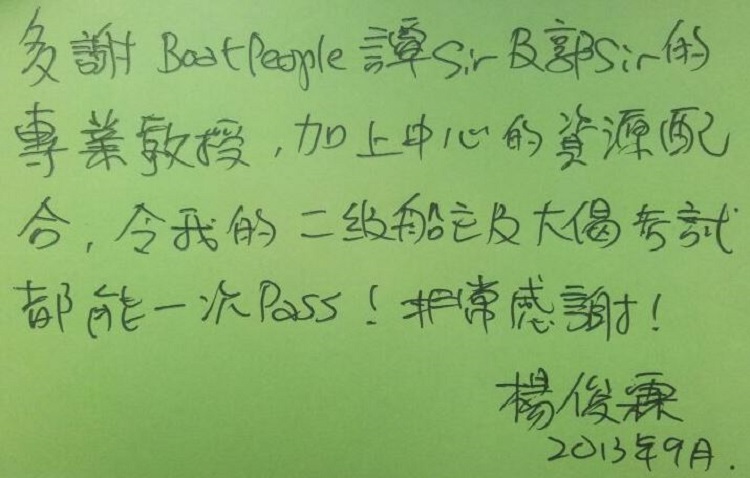 多謝 BoatPeople 譚Sir及郭Sir的
專業教授，加上中心的資源配
合，令我的二級船主及大偈考試
都能一次Pass！非常感謝！
楊俊霖
2013年9月.